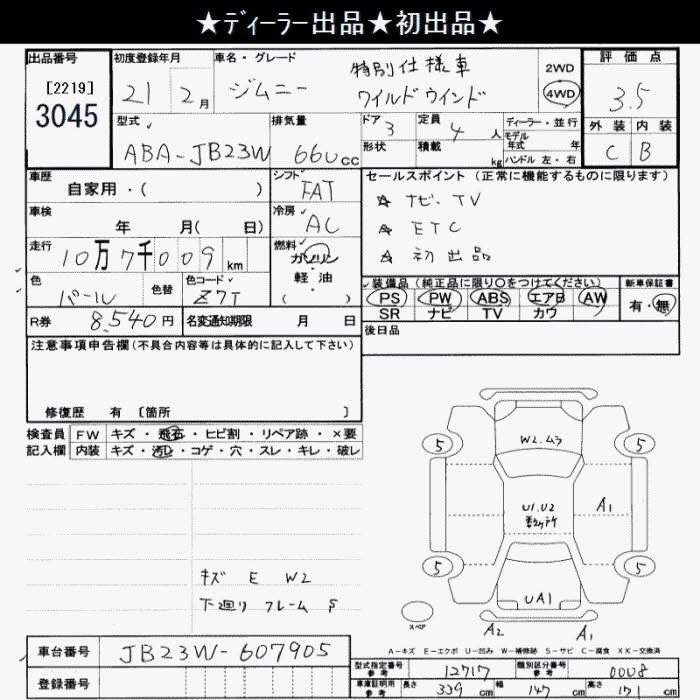 ★ディーラー出品★初出品★
出品番号
[2219]
3045
初度登録年月
21 2月
車名・グレード
ジムニー
特別仕様車
ワイルドウインド
2WD
4WD
評価点
3.5
型式
ABA-JB23W
排気量
660cc
ドア 3
形状
定員 4人
積載 kg
ディーラー・並行
モデル年式 年
ハンドル 左・右
外装 内装
C B
車歴
自家用・( )
シフト
FAT
セールスポイント(正常に機能するものに限ります)
☆ ナビ、TV
☆ ETC
☆ 初出品
車検
年 月( 日)
冷房
AC
走行
10万7千009km
燃料
ガソリン
軽・油
( )
色
パール
色替
色コード
Z7T
装備品(純正品に限り○をつけてください)
PS PW ABS エアB AW
SR ナビ TV カワ
新車保証書
有・無
R券 8,540円
名変通知期限 月 日
後日品
注意事項申告欄(不具合内容等は具体的に記入して下さい)
修復歴 有 [箇所 ]
検査員
記入欄
FW キズ・飛石・ヒビ割・リペア跡・×要
内装 キズ・汚レ・コゲ・穴・スレ・キレ・破レ
W2.U3
5 5
U1.U2
数ヶ所
A1
5 5
UA1
スペア
A2 A1
キズ E W2
下廻り フレーム S
A-キズ E-エクボ U-凹み W-補修跡 S-サビ C-腐食 XX-交換済
車台番号 JB23W-607905
登録番号
型式指定番号
参考
12717
類別区分番号
参考
0008
車庫証明用
参考
長さ 339cm 幅 147cm 高さ 171cm